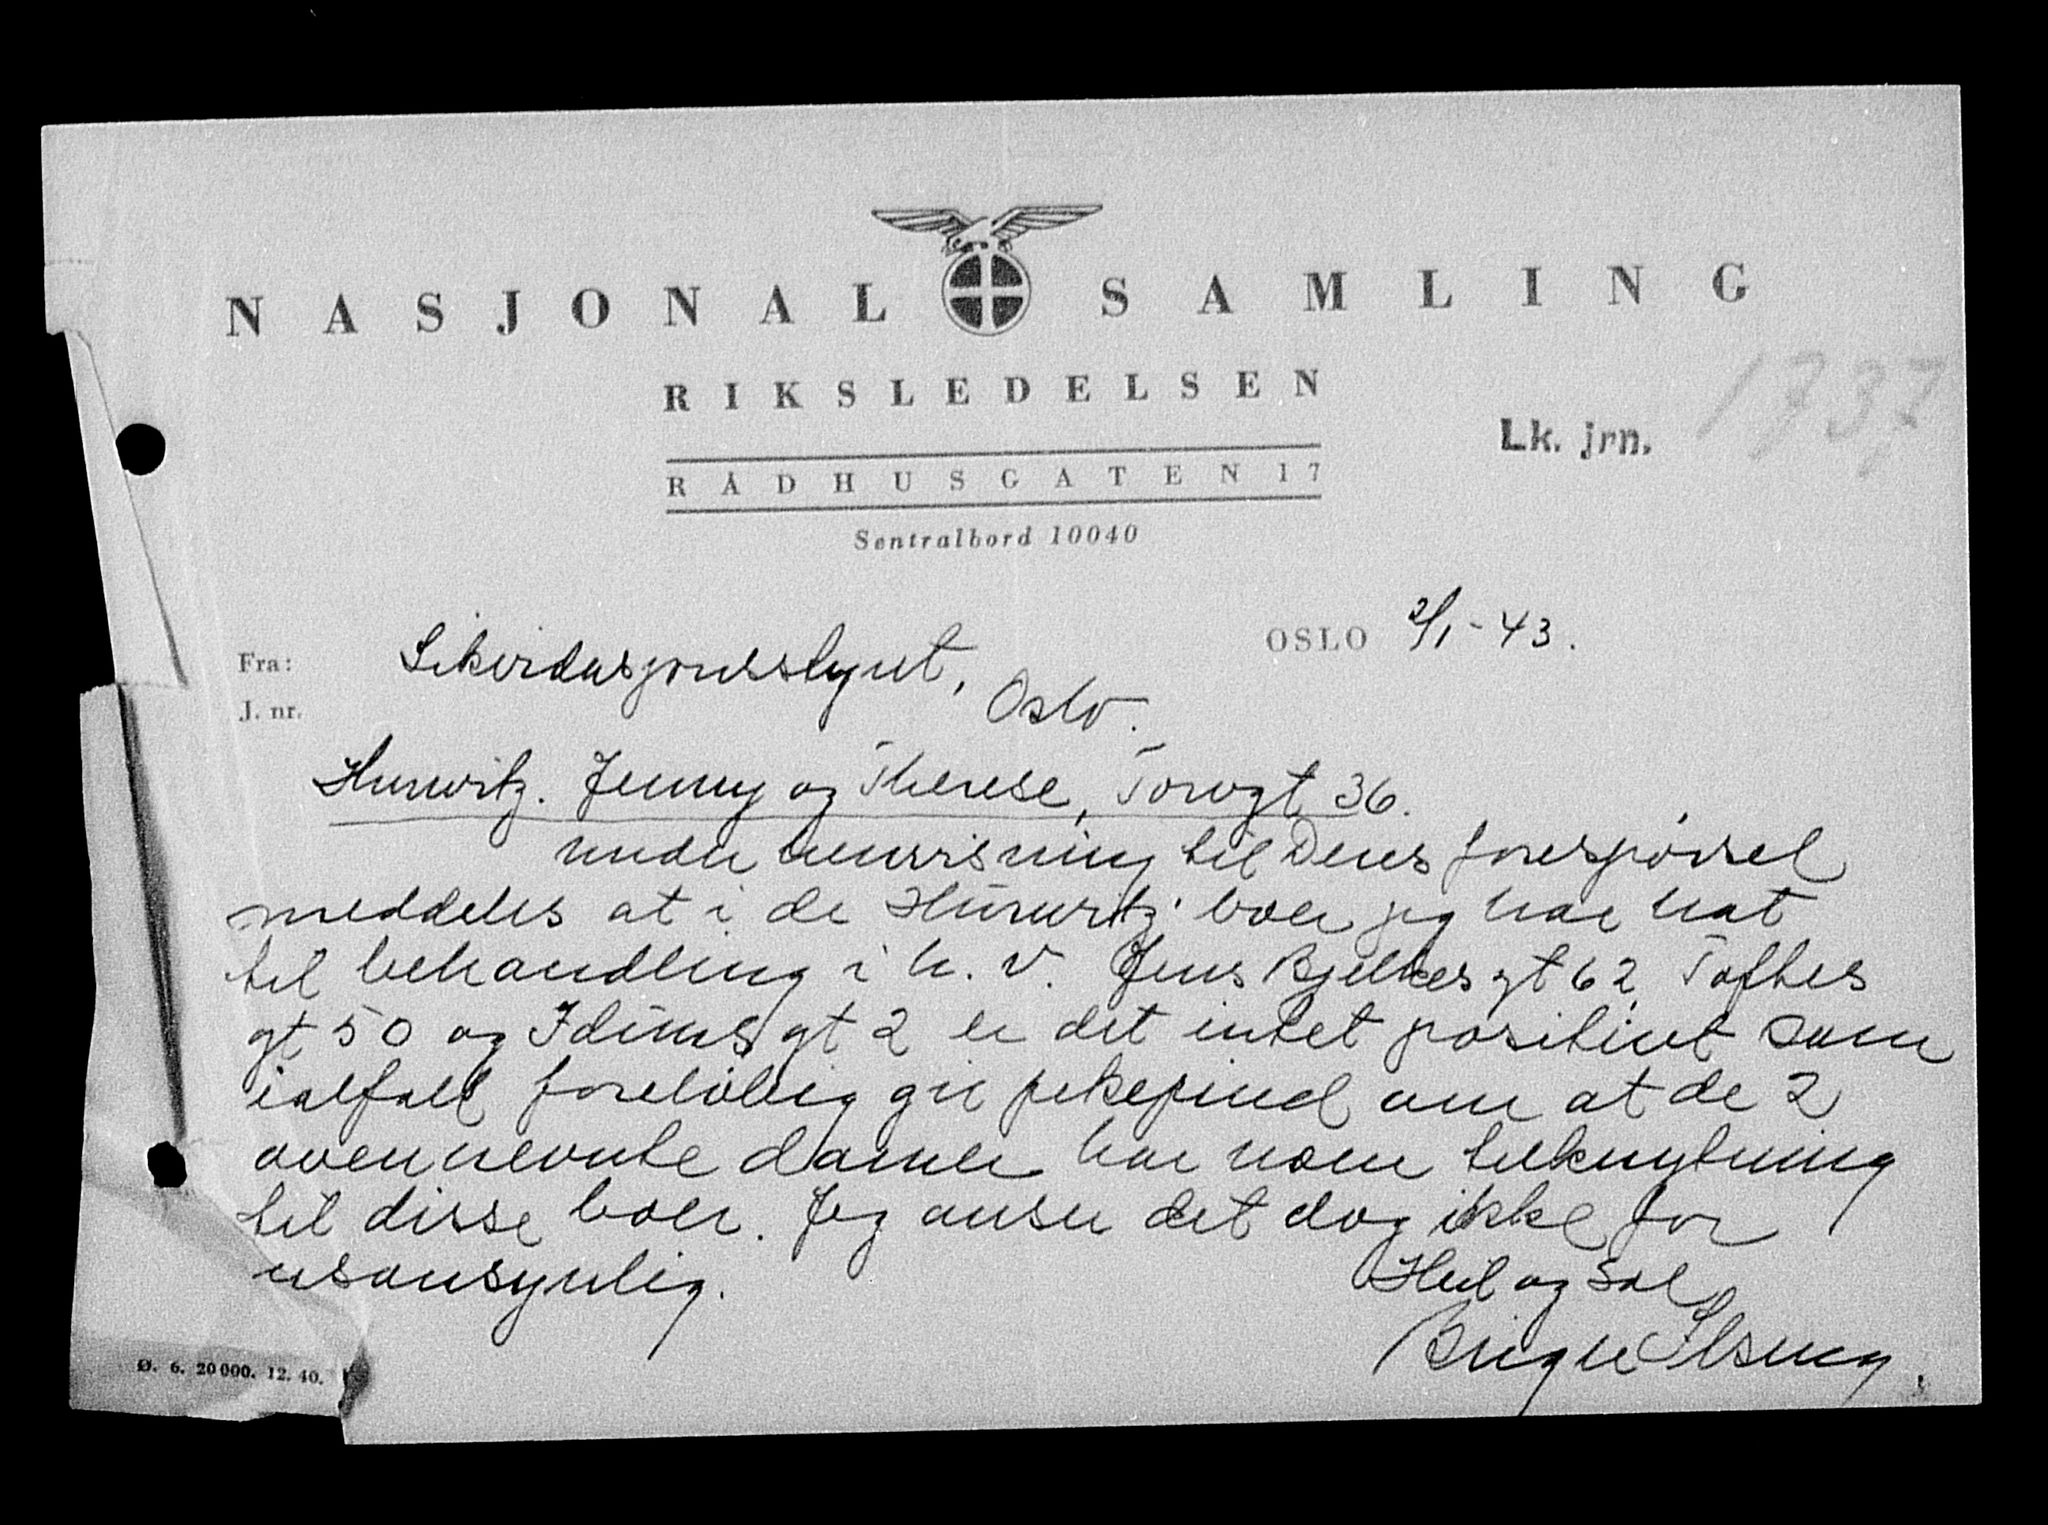 NASJONAL SAMLING
RIKSLEDELSEN
Lk. jrn. 1737
RÅDHUSGATEN 17
Sentralbord 10040
OSLO 2/1-43.
Fra: Likvidasjonsstyret,
J. nr. Oslo.
Hurwitz. Jenny og Therese, Torvgt 36.
under henvisning til Deres forespørsel
meddeles at i de Hurwitz' boer jeg har hat
til behandling i h. v. Jens Bjelkesgt 62, Toftes
gt 50 og Iduns gt 2 er det intet positivt som
ialfall foreløbig gir pekepind om at de 2
ovennevnte damer har noen tilknytning
til disse boer. Jeg anser det dog ikke for
usansynlig.
Heil og Sæl
Birger
Ø. 6. 20 000. 12. 40.